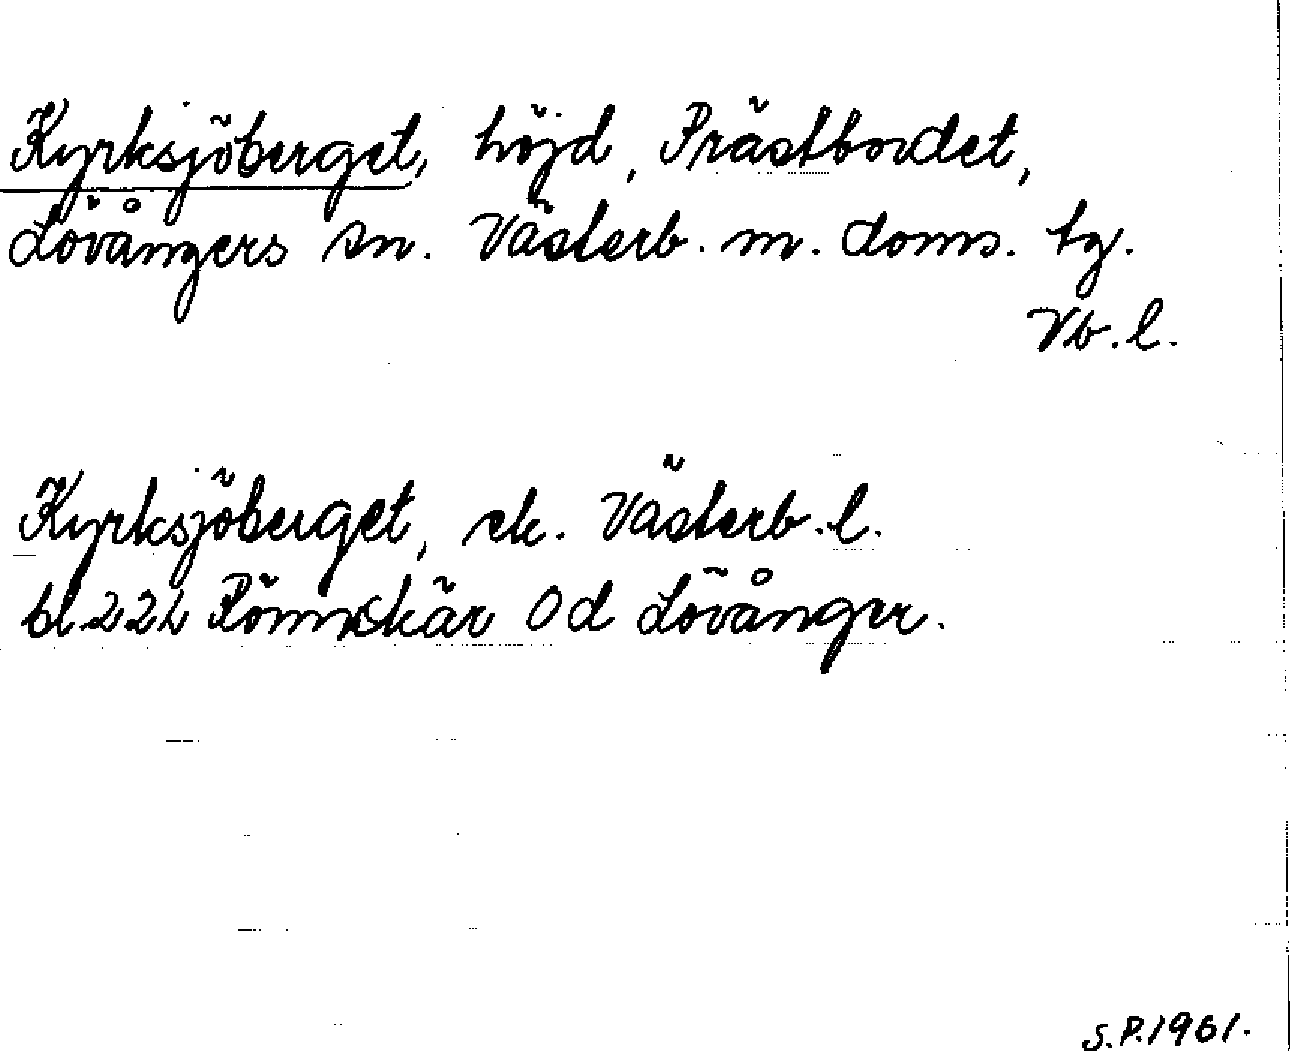 Kyrksjöberget, höjd, Prästbordet,
Lövångers sn. Västerb. m. doms. tg.
Vb. l.
Kyrksjöberget, ek. Västerb. l.
bl 22h Rönnskär Od Lövånger.
S.P. 1961.